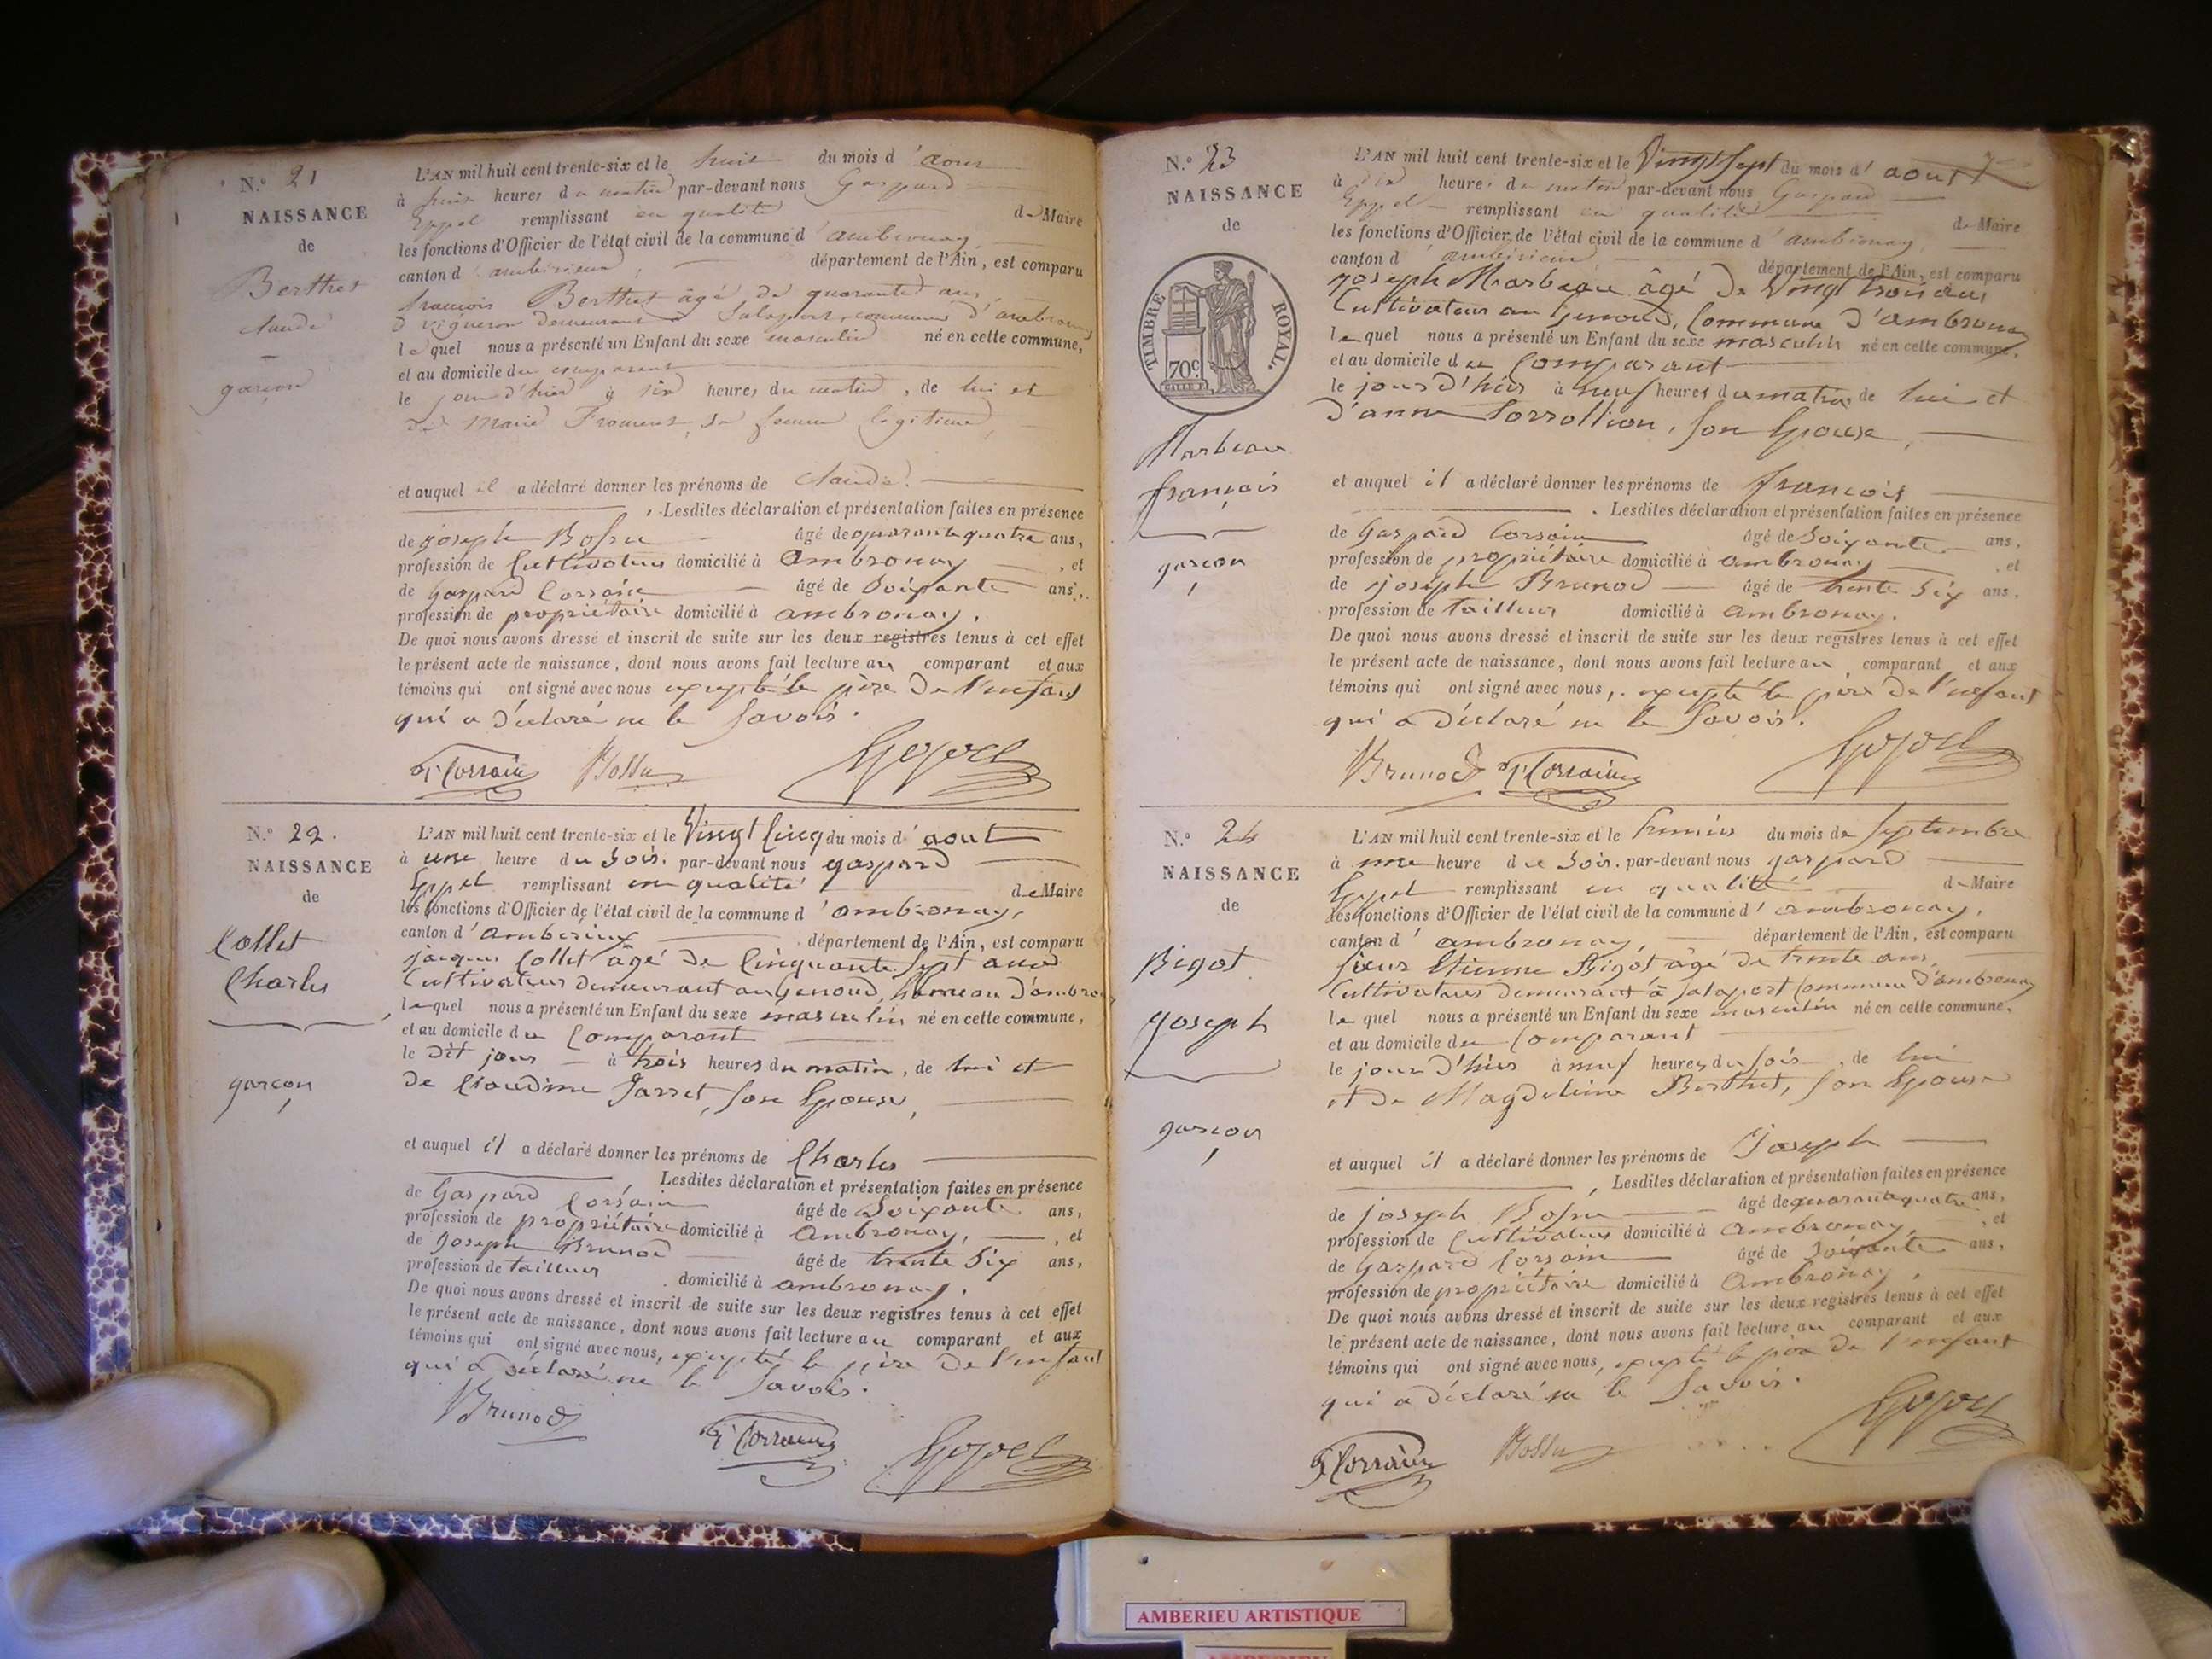 N.º 21
NAISSANCE
de
Berthet
claude
garçon
L'AN mil huit cent trente-six et le huit du mois d'aout
à huit heures du matin par-devant nous Gaspard
remplissant en qualité de Maire
les fonctions d'Officier de l'état civil de la commune d'ambronay
canton d'ambérieux, département de l'Ain, est comparu
françois Berthet âgé de quarante ans,
vigneron demeurant à Salaport, commune d'ambronay
lequel nous a présenté un Enfant du sexe masculin né en cette commune,
et au domicile du comparant
le jour d'hier à six heures du matin, de lui et
de Marie Froment, sa femme légitime,
et auquel il a déclaré donner les prénoms de claude.
. Lesdites déclaration et présentation faites en présence
de joseph Bossu âgé de quarante quatre ans,
profession de Cultivateur domicilié à Ambronay, et
de Gaspard Corsain âgé de Soixante ans,
profession de propriétaire domicilié à ambronay.
De quoi nous avons dressé et inscrit de suite sur les deux registres tenus à cet effet
le présent acte de naissance, dont nous avons fait lecture au comparant et aux
témoins qui ont signé avec nous excepté le père De l'enfant
qui a déclaré ne le Savoir.
Bossu
N.º 22.
NAISSANCE
de
Collet
Charles
garçon
L'AN mil huit cent trente-six et le Vingt Cinq du mois d'aout
à une heure du Soir. par-devant nous gaspard
remplissant en qualité de Maire
les fonctions d'Officier de l'état civil de la commune d'ambronay,
canton d'Amberieux département de l'Ain, est comparu
jacques Collet âgé De Cinquante Sept ans
Cultivateur demeurant au Genoud, hameau D'ambronay
lequel nous a présenté un Enfant du sexe masculin né en cette commune,
et au domicile du Comparant
le Dit jour à trois heures du matin, de lui et
de Claudine Jarret, Son Epouse,
et auquel il a déclaré donner les prénoms de Charles
Lesdites déclaration et présentation faites en présence
de Gaspard Corsain âgé de Soixante ans,
profession de propriétaire domicilié à Ambronay, et
de Joseph Brunod âgé de trente Six ans,
profession de tailleur domicilié à ambronay.
De quoi nous avons dressé et inscrit de suite sur les deux registres tenus à cet effet
le présent acte de naissance, dont nous avons fait lecture au comparant et aux
témoins qui ont signé avec nous, excepté le père De l'enfant
qui a déclaré ne le Savoir.
Brunod
N.º 23
NAISSANCE
de
TIMBRE ROYAL.
70c
Marbeau
françois
garçon
L'AN mil huit cent trente-six et le Vingt Sept du mois d'aout
à dix heures du matin par-devant nous Gaspard
remplissant en qualité de Maire
les fonctions d'Officier de l'état civil de la commune d'ambronay
canton d'ambérieux département de l'Ain, est comparu
joseph Marbeau âgé De Vingt trois ans,
Cultivateur au Genoud, Commune D'ambronay
lequel nous a présenté un Enfant du sexe masculin né en cette commune,
et au domicile du Comparant
le jour d'hier à neuf heures du matin de lui et
D'anne Son Epouse,
et auquel il a déclaré donner les prénoms de françois
. Lesdites déclaration et présentation faites en présence
de Gaspard Corsain âgé de Soixante ans,
profession de propriétaire domicilié à ambronay, et
de joseph Brunod âgé de trente Six ans,
profession de tailleur domicilié à ambronay.
De quoi nous avons dressé et inscrit de suite sur les deux registres tenus à cet effet
le présent acte de naissance, dont nous avons fait lecture au comparant et aux
témoins qui ont signé avec nous, excepté le père De l'enfant
qui a déclaré ne le Savoir.
Brunod
N.º 24
NAISSANCE
de
Bigot
joseph
garçon
L'AN mil huit cent trente-six et le premier du mois de Septembre
à une heure du Soir. par-devant nous gaspard
remplissant en qualité de Maire
les fonctions d'Officier de l'état civil de la commune d'ambronay,
canton d'ambronay, département de l'Ain, est comparu
sieur Etienne Bigot âgé De trente ans,
Cultivateur Demeurant à Salaport Commune D'ambronay
lequel nous a présenté un Enfant du sexe masculin né en cette commune.
et au domicile du Comparant
le jour d'hier à neuf heures du Soir, de lui
et De Magdeleine Berthet, Son Epouse
et auquel il a déclaré donner les prénoms de Joseph
, Lesdites déclaration et présentation faites en présence
de joseph Bossu âgé de quarante quatre ans,
profession de Cultivateur domicilié à Ambronay, et
de Gaspard Corsain âgé de Soixante ans,
profession de propriétaire domicilié à Ambronay,
De quoi nous avons dressé et inscrit de suite sur les deux registres tenus à cet effet
le présent acte de naissance, dont nous avons fait lecture au comparant et aux
témoins qui ont signé avec nous, excepté le père de l'enfant
qui a déclaré ne le Savoir.
Bossu
AMBERIEU ARTISTIQUE